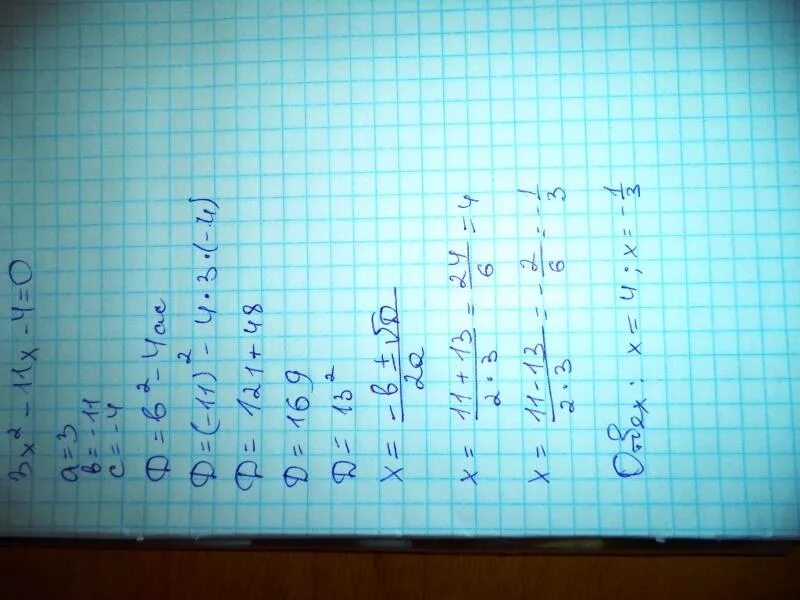 3x² - 11x - 4 = 0
a = 3
в = -11
c = -4
D = в² - 4ac
D = (-11)² - 4·3·(-4)
D = 121 + 48
D = 169
D = 13²
x = (-в ± √D)/(2a)
x = (11 + 13)/(2·3) = 24/6 = 4
x = (11 - 13)/(2·3) = -2/6 = -1/3
x = 4; x = -1/3